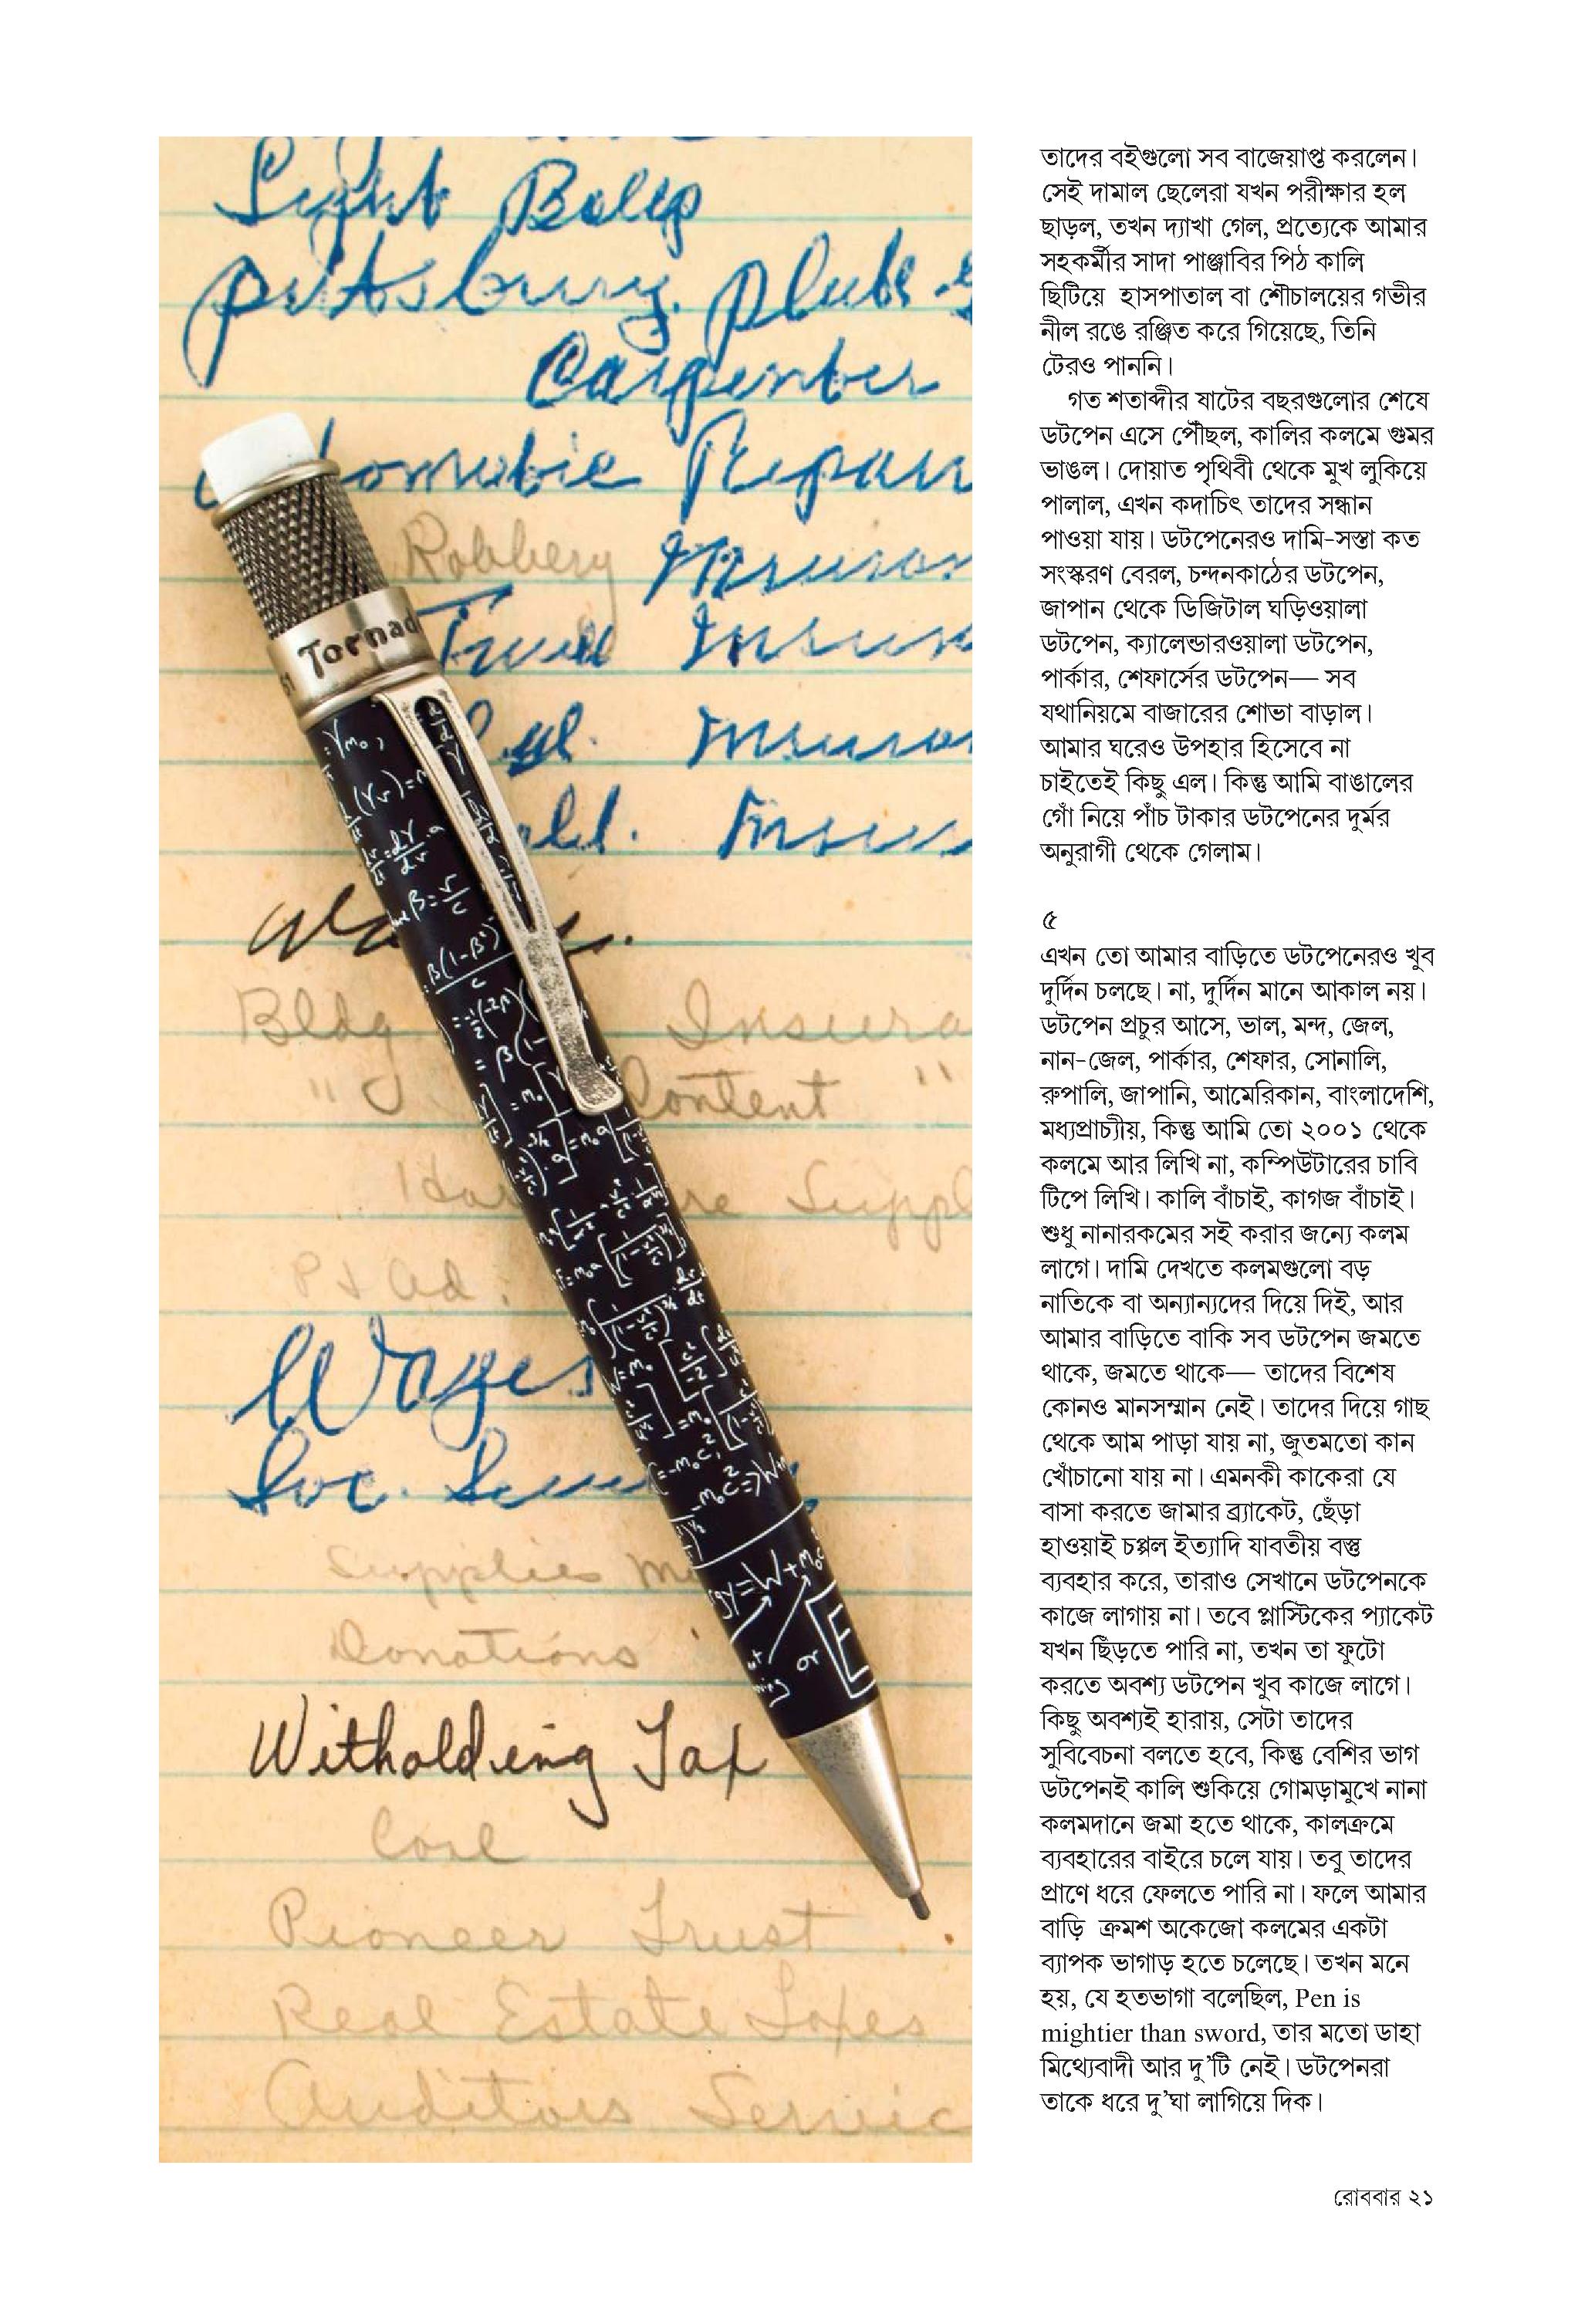 Light Bulbs
Pittsburg. Plate
Carpenter
Repair
Robbery
Tornad
Content
Wages
Supplies
Donations
or E
Witholding Tax
Coal
Pioneer Trust
Real Estate
Auditors Servic
তাদের বইগুলো সব বাজেয়াপ্ত করলেন।
সেই দামাল ছেলেরা যখন পরীক্ষার হল
ছাড়ল, তখন দ্যাখা গেল, প্রত্যেকে আমার
সহকর্মীর সাদা পাঞ্জাবির পিঠ কালি
ছিটিয়ে হাসপাতাল বা শৌচালয়ের গভীর
নীল রঙে রঞ্জিত করে গিয়েছে, তিনি
টেরও পাননি।
গত শতাব্দীর ষাটের বছরগুলোর শেষে
ডটপেন এসে পৌঁছল, কালির কলমে গুমর
ভাঙল। দোয়াত পৃথিবী থেকে মুখ লুকিয়ে
পালাল, এখন কদাচিৎ তাদের সন্ধান
পাওয়া যায়। ডটপেনেরও দামি-সস্তা কত
সংস্করণ বেরল, চন্দনকাঠের ডটপেন,
জাপান থেকে ডিজিটাল ঘড়িওয়ালা
ডটপেন, ক্যালেন্ডারওয়ালা ডটপেন,
পার্কার, শেফার্সের ডটপেন— সব
যথানিয়মে বাজারের শোভা বাড়াল।
আমার ঘরেও উপহার হিসেবে না
চাইতেই কিছু এল। কিন্তু আমি বাঙালের
গোঁ নিয়ে পাঁচ টাকার ডটপেনের দুর্মর
অনুরাগী থেকে গেলাম।
৫
এখন তো আমার বাড়িতে ডটপেনেরও খুব
দুর্দিন চলছে। না, দুর্দিন মানে আকাল নয়।
ডটপেন প্রচুর আসে, ভাল, মন্দ, জেল,
নান-জেল, পার্কার, শেফার, সোনালি,
রুপালি, জাপানি, আমেরিকান, বাংলাদেশি,
মধ্যপ্রাচ্যীয়, কিন্তু আমি তো ২০০১ থেকে
কলমে আর লিখি না, কম্পিউটারের চাবি
টিপে লিখি। কালি বাঁচাই, কাগজ বাঁচাই।
শুধু নানারকমের সই করার জন্যে কলম
লাগে। দামি দেখতে কলমগুলো বড়
নাতিকে বা অন্যান্যদের দিয়ে দিই, আর
আমার বাড়িতে বাকি সব ডটপেন জমতে
থাকে, জমতে থাকে— তাদের বিশেষ
কোনও মানসম্মান নেই। তাদের দিয়ে গাছ
থেকে আম পাড়া যায় না, জুতমতো কান
খোঁচানো যায় না। এমনকী কাকেরা যে
বাসা করতে জামার ব্র্যাকেট, ছেঁড়া
হাওয়াই চপ্পল ইত্যাদি যাবতীয় বস্তু
ব্যবহার করে, তারাও সেখানে ডটপেনকে
কাজে লাগায় না। তবে প্লাস্টিকের প্যাকেট
যখন ছিঁড়তে পারি না, তখন তা ফুটো
করতে অবশ্য ডটপেন খুব কাজে লাগে।
কিছু অবশ্যই হারায়, সেটা তাদের
সুবিবেচনা বলতে হবে, কিন্তু বেশির ভাগ
ডটপেনই কালি শুকিয়ে গোমড়ামুখে নানা
কলমদানে জমা হতে থাকে, কালক্রমে
ব্যবহারের বাইরে চলে যায়। তবু তাদের
প্রাণে ধরে ফেলতে পারি না। ফলে আমার
বাড়ি ক্রমশ অকেজো কলমের একটা
ব্যাপক ভাগাড় হতে চলেছে। তখন মনে
হয়, যে হতভাগা বলেছিল, Pen is
mightier than sword, তার মতো ডাহা
মিথ্যেবাদী আর দু'টি নেই। ডটপেনরা
তাকে ধরে দু'ঘা লাগিয়ে দিক।
রোববার ২১